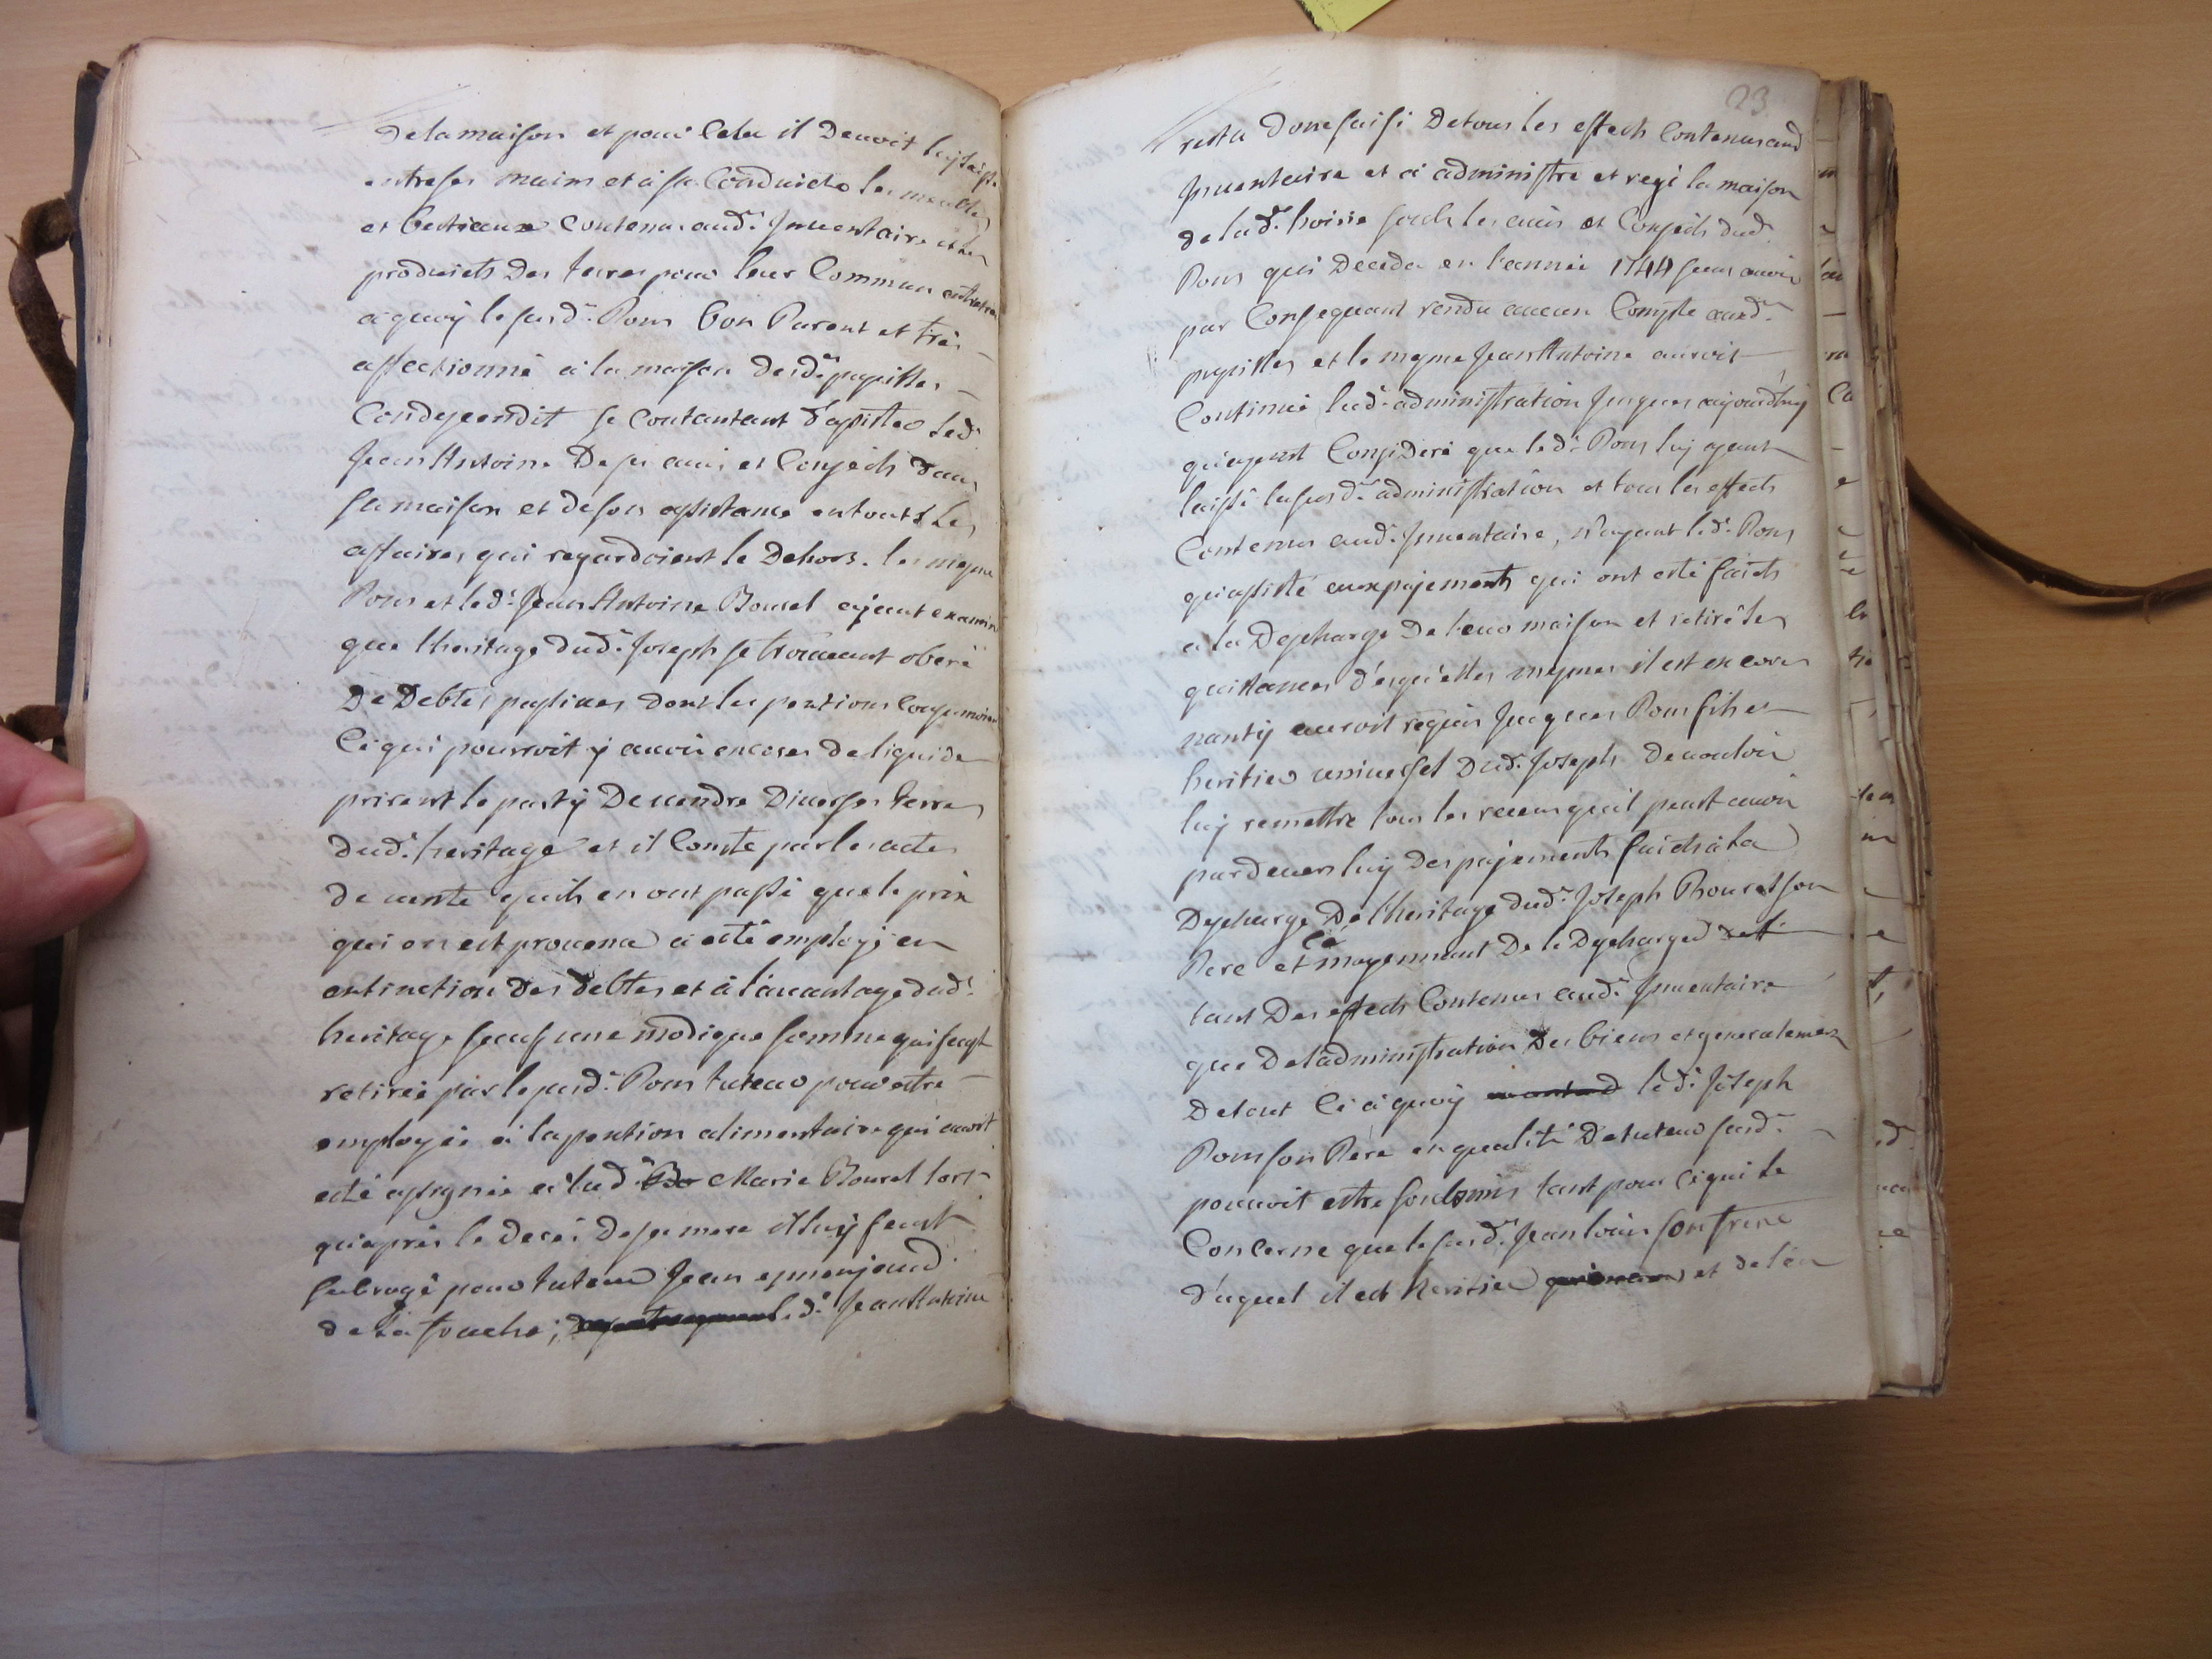 de la maison et pour cela il devoit luy laisser
entre ses mains et à sa conduicte les meubles
et bestiaux contenus aud.t Inventaire et les
produicts des terres pour leur commun entretien
à quoy le susd.t Pons bon Parent et très
affectionné à la maison desd.ts pupilles
condescendit se contantant d'assister led.t
Jean Antoine de ses avis et conseils dans
sa maison et de son assistance en touts les
affaires qui regardoient le dehors. les mesme
Pons et led.t Jean Antoine Bourel ajant examiné
que lheritage dud.t Joseph se trouvant oberé
De Debtes passives dont les pentions
Ce qui pourroit y avoir encores de liquide
prirent le party De vendre Diverses terres
dud.t heritage et il Conste par les actes
de vente quils en ont passé que le prix
qui en est provenu a esté employé en
extinction des debtes et à l'avantage dud.t
heritage sauf une modique somme qui feust
retirée par le susd.t Pons tuteur pour estre
employée à la pention alimentaire qui avoit
esté assignée à lad.e Marie Bourel lors
qu'après le decés de sa mere il luy feust
subrogé pour tuteur Jean
de la fouche; led.t Jean Antoine
23
resta donc saisi De tous les effects Contenus aud
Inventaire et a administré et regi la maison
de lad.e hoirie soubs les avis et Conseils dud.
Pons qui deceda en l'année 1744 sans avoir
par Consequant rendu aucun Compte ausd.ts
pupilles et le mesme Jean Antoine auroit
Continué lad.e administration Jusques aujourd'huy
qu'ayant Consideré que led.t Pons luy ayant
laissé la susd.e administration et tous les effects
Contenus aud.t Inventaire, n'ayant led.t Pons
qu'assisté aux pajements qui ont esté faicts
a la Descharge De leur maison et retiré les
quittances d'esqu'elles mesmes il est encores
nanty auroit requis Jacques Pons fils et
heritier universel Dud.t Joseph De vouloir
luy remettre tous les receus qu'il peut avoir
pardevers luy Des pajements faicts à la
Descharge De l'heritage dud.t Joseph Bourel son
Pere et ce moyennant De le Descharger
tant Des effects Contenus aud.t Inventaire
que De l'administration Des biens et generalement
De tout Ce à quoy led.t Joseph
Pons son Pere en qualité De tuteur susd.t
pouvoit estre soubmis tant pour Ce qui le
Concerne que le susd.t Jean louis son frere
d'uquel il est heritier et de l'en